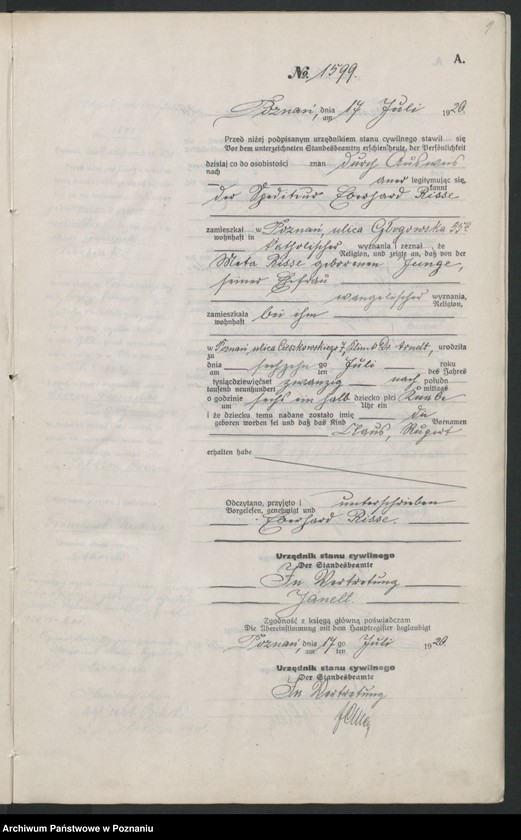 9
A.
No. 1599.
Poznań, dnia 17 Juli 1920.
am
Przed niżej podpisanym urzędnikiem stanu cywilnego stawił się
Vor dem unterzeichneten Standesbeamten erschien heute, der Persönlichkeit
dzisiaj co do osobistości znan durch Ausweis
nach
aner legitymując się,
kannt
der Spediteur Eberhard Risse
zamieszkał w Poznań, ulica Głogowska
wohnhaft in
katholischer wyznania i zeznał, że
Religion, und zeigte an, daß von der
Meta Risse geborenen Junge,
seiner Ehefrau
evangelischer wyznania,
Religion,
zamieszkała bei ihm
wohnhaft
w Poznań, ulica Cieszkowskiego 7, Klinik Dr. Arndt, urodziła
zu
dnia sechzehn go Juli roku
am ten des Jahres
tysiącdziewięćset zwanzig nach połudn
tausend neunhundert mittags
o godzinie sechs ein halb dziecko płci Knabe
um Uhr ein
i że dziecku temu nadane zostało imię die
geboren worden sei und daß das Kind Vornamen
Claus, Rupert
erhalten habe.
Odczytano, przyjęto i unterschrieben
Vorgelesen, genehmigt und
Eberhard Risse.
Urzędnik stanu cywilnego
Der Standesbeamte
In Vertretung
Janell.
Zgodność z księgą główną poświadczam
Die Übereinstimmung mit dem Hauptregister beglaubigt
Poznań, dnia 17 go Juli 1920.
am ten
Urzędnik stanu cywilnego
Der Standesbeamte
In Vertretung
Archiwum Państwowe w Poznaniu